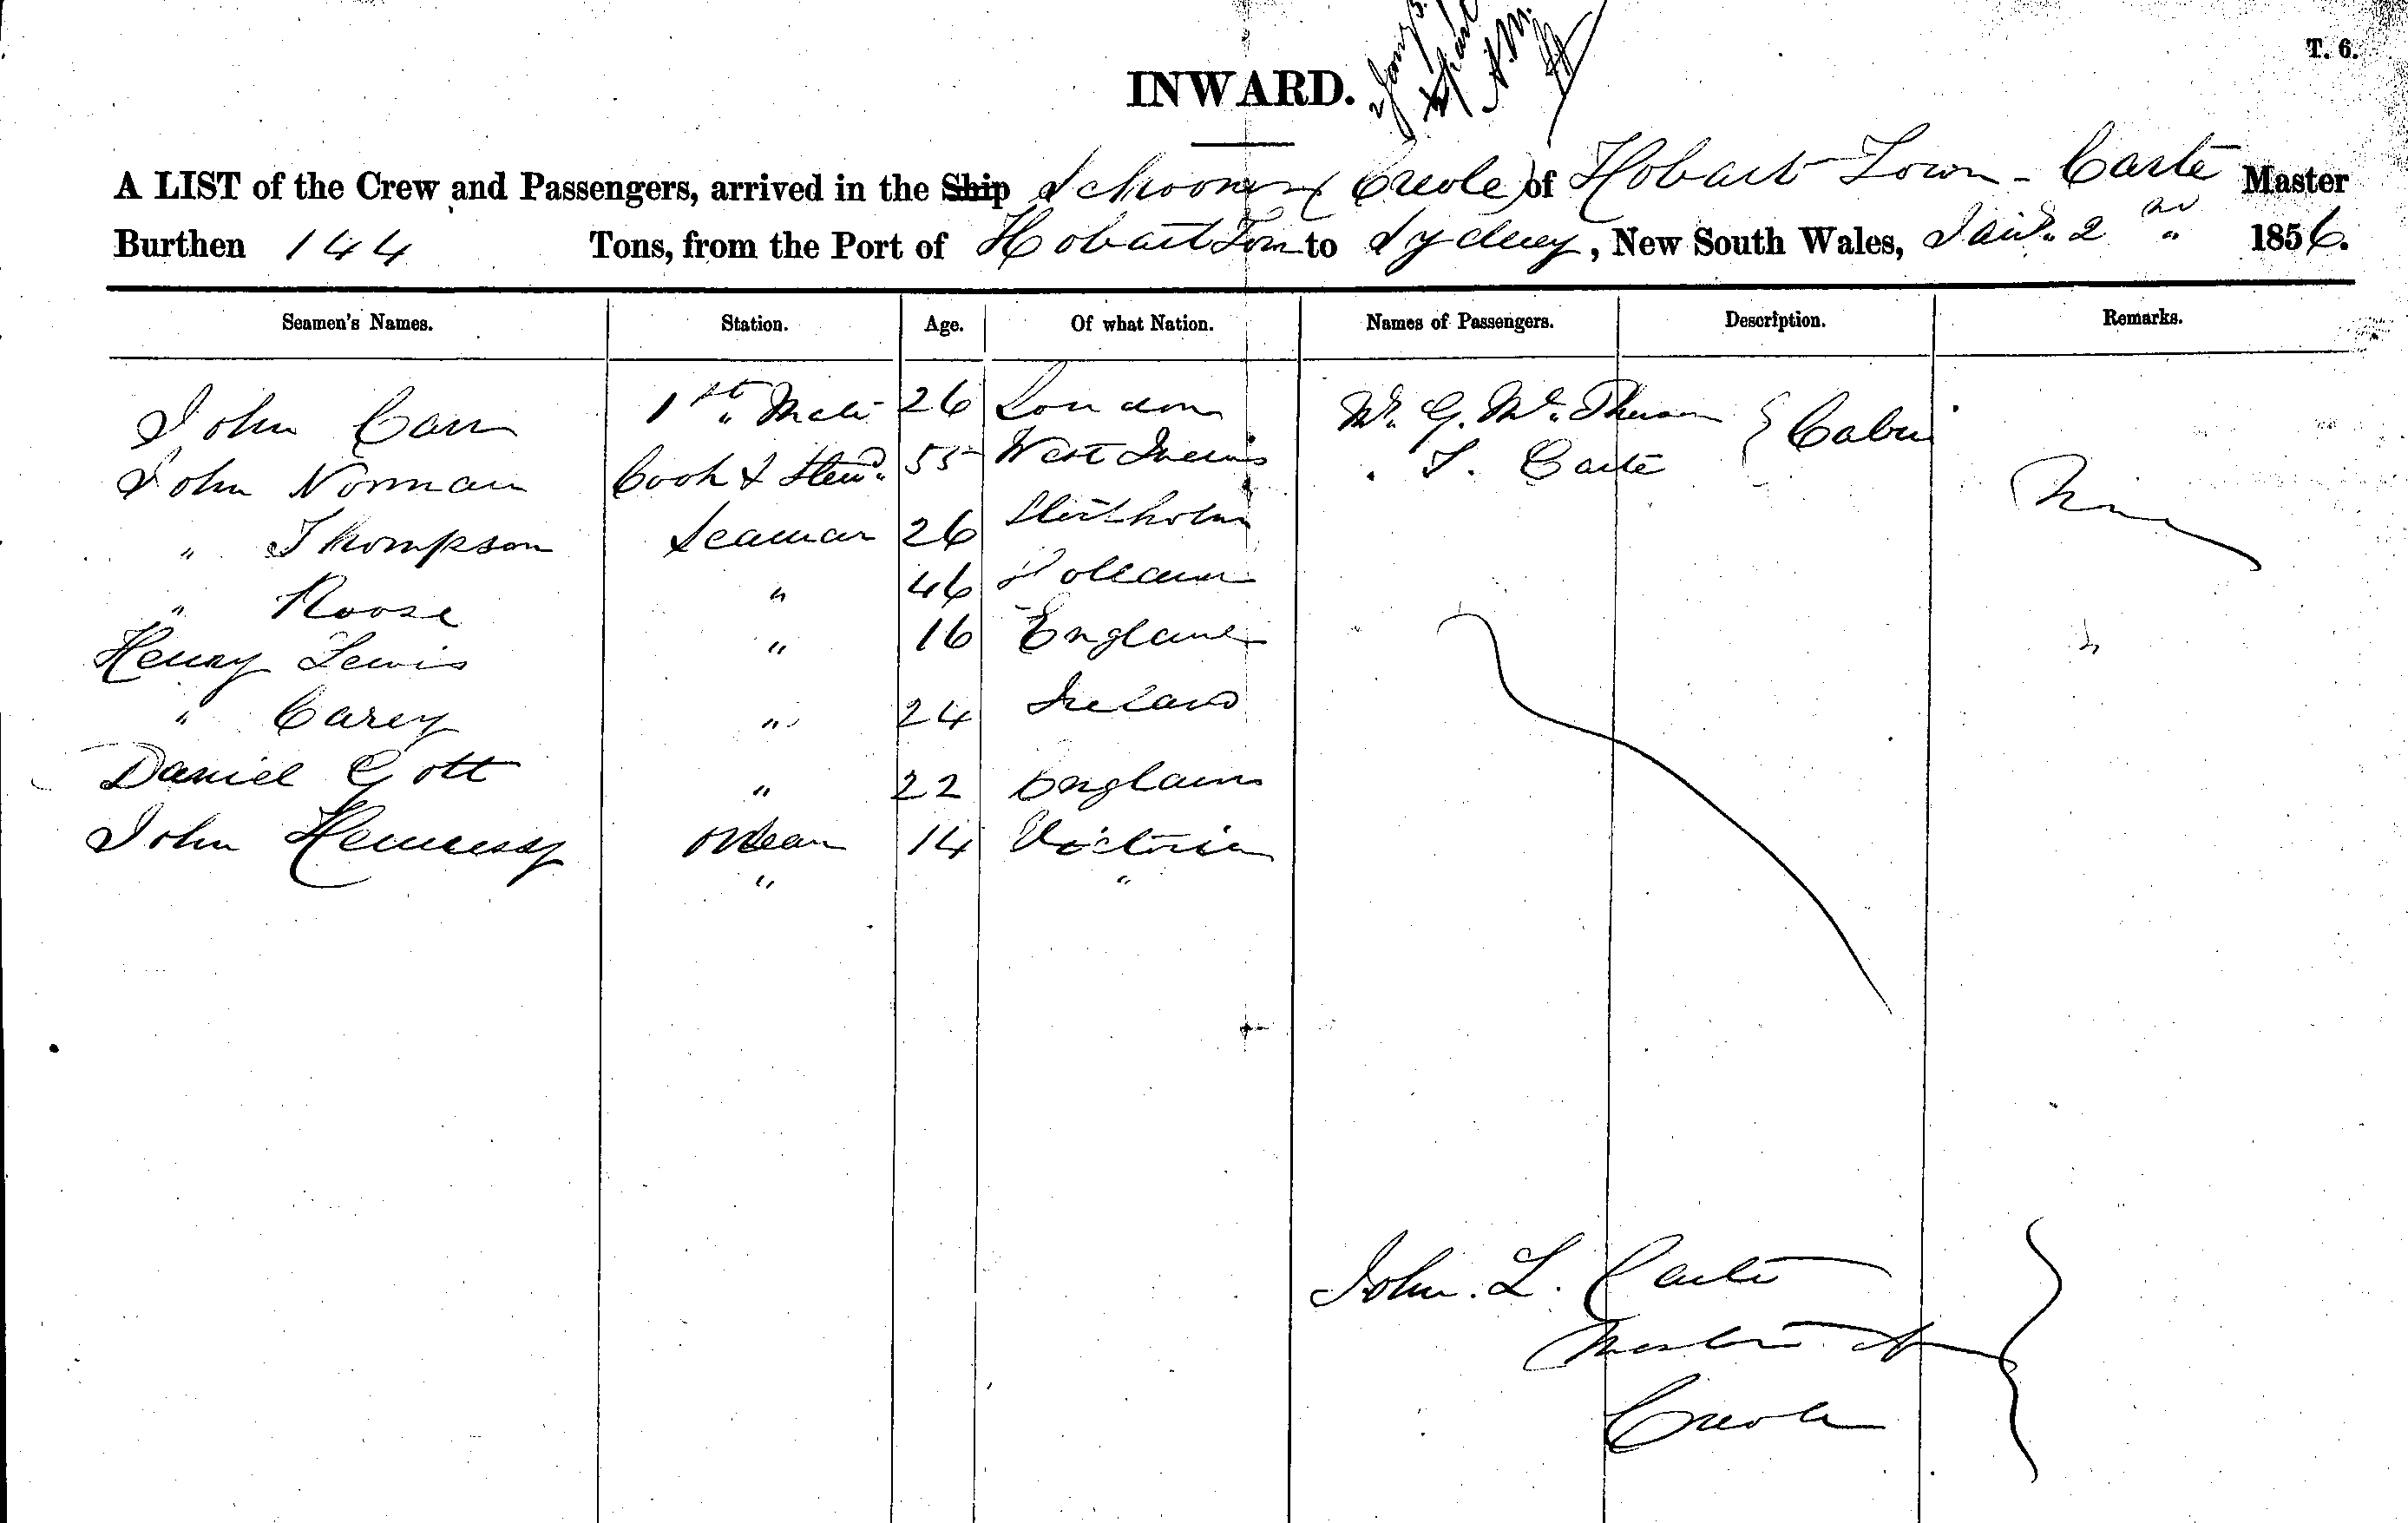 T. 6.
INWARD.
A LIST of the Crew and Passengers, arrived in the Ship Schooner (Creole) of Hobart Town - Carte Master
Burthen 144 Tons, from the Port of Hobart Town to Sydney, New South Wales, Jany. 2nd 1856.
Seamen's Names. Station. Age. Of what Nation. Names of Passengers. Description. Remarks.
John Carr 1st Mate 26 London Mr. G. Mc.Pherson } Cabin
John Norman Cook & Stewd. 55 West Indies " T. Carte
" Thompson Seaman 26 Stockholm
" Roose " 46 Holland
Henry Lewis " 16 England
" Carey " 24 Ireland
Daniel Gott " 22 England
John Hennessy 14 Victoria
" "
John. L. Carte
Master
Creole